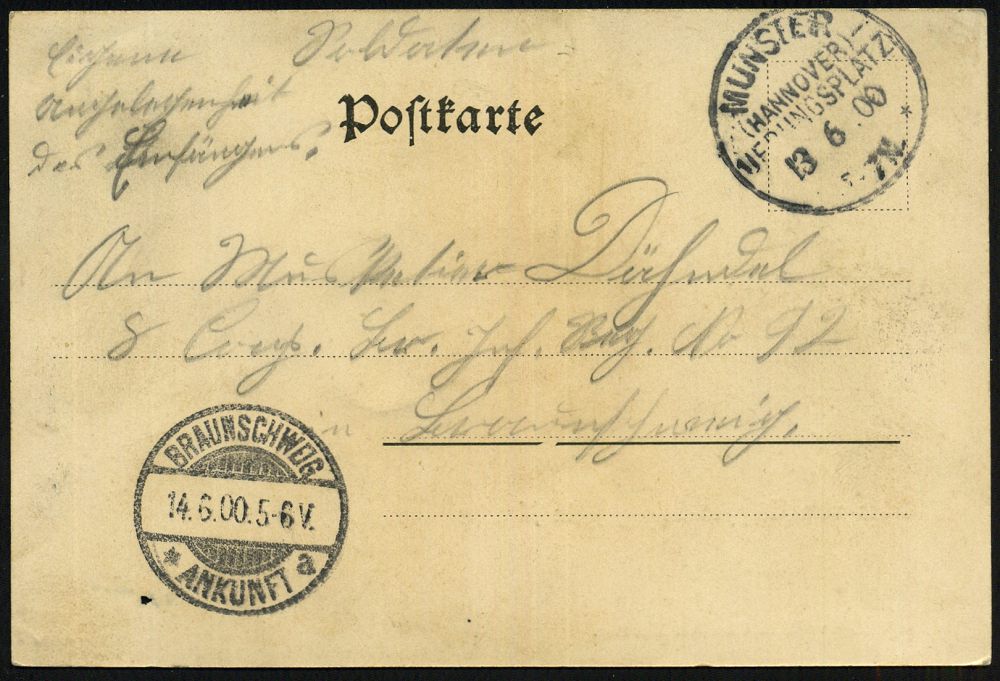 Eigene Soldaten-
Angelegenheit
des Empfängers.
Postkarte
MUNSTER
(HANNOVER)
UEBUNGSPLATZ
13 6 00 *
5-7N.
An Musketier
8 Comp. Br. Inf. Reg. No 92
in Braunschweig.
BRAUNSCHWEIG
14.6.00.5-6V.
* ANKUNFT a